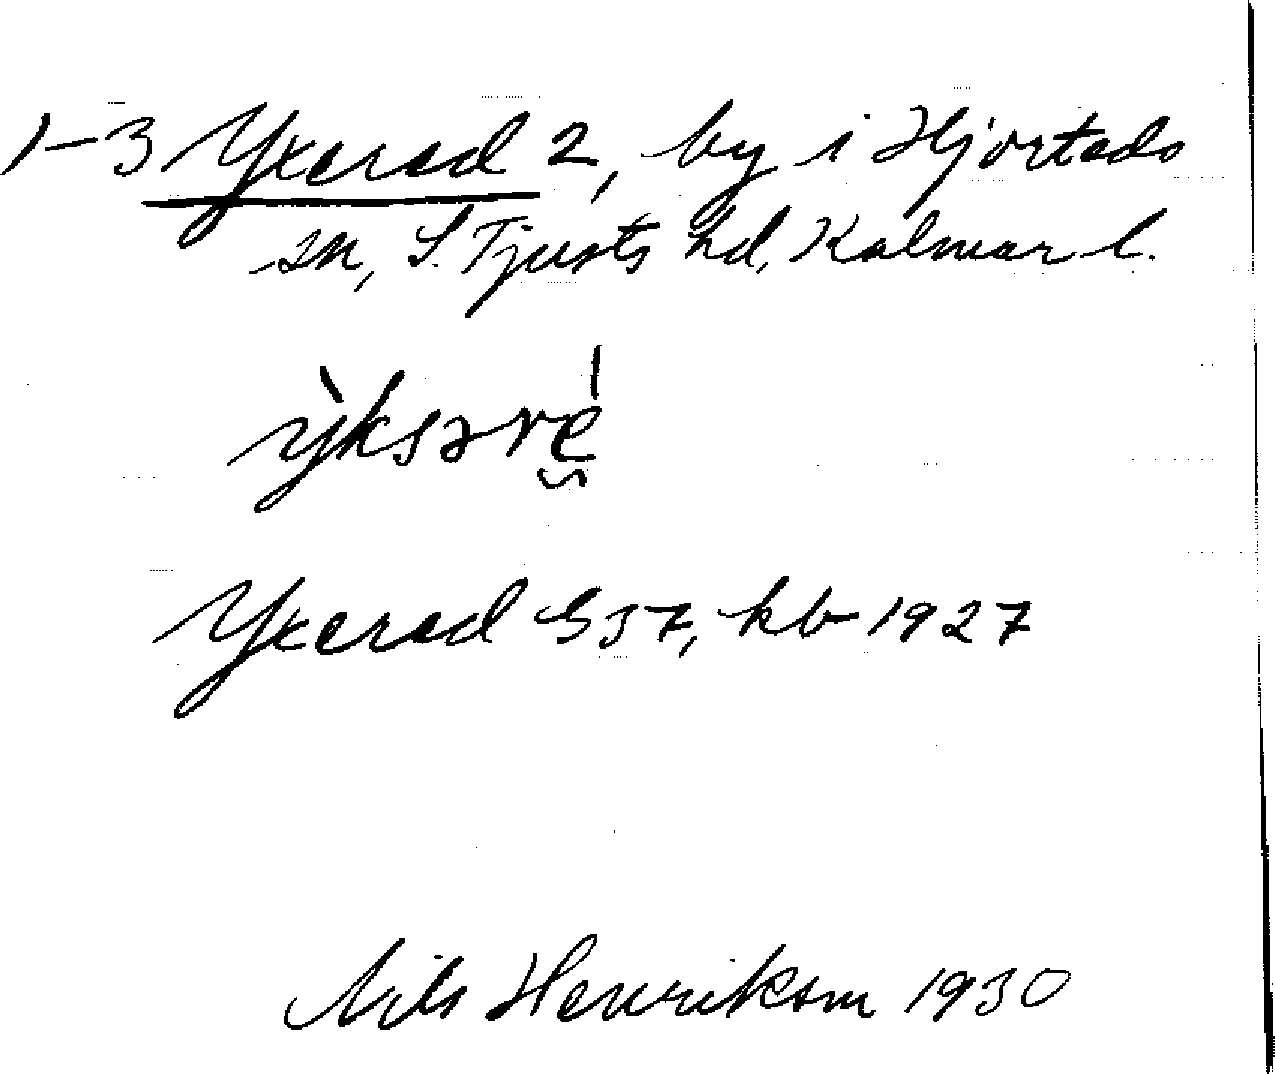 1-3 Yxered 2, by i Hjorteds
sn, S. Tjusts hd, Kalmar l.
ỳksəré̮
Yxered S 37, kb 1927
Nils Henrikson 1930